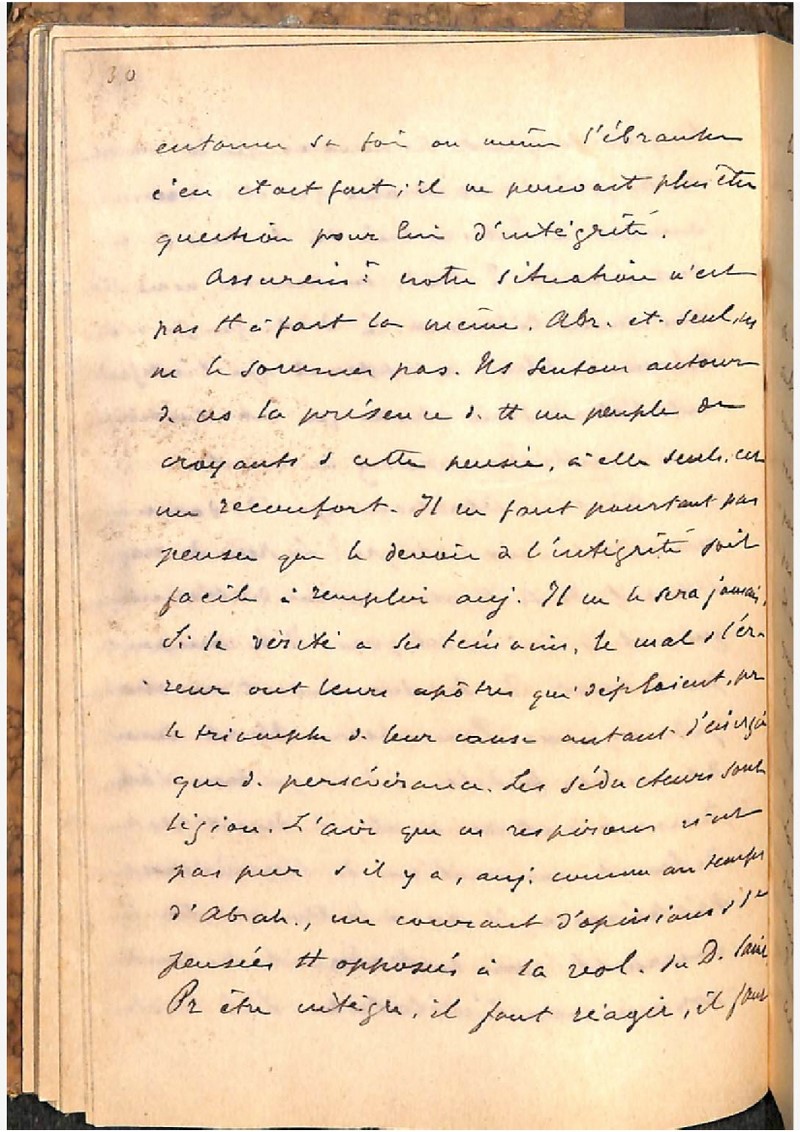 30
entamer sa foi ou même l'ébranler
c'en était fait; il ne pouvait plus être
question pour lui d'intégrité.
Assurémt notre situation n'est
pas tt à fait la même. Abr. et. seul, ns
ne le sommes pas. Ns sentons autour
d. ns la présence d. tt un peuple de
croyants & cette pensée, à elle seule, est
un réconfort. Il ne faut pourtant pas
penser que le devoir de l'intégrité soit
facile à remplir auj. Il ne le sera jamais.
Si la vérité a ses témoins, le mal & l'er-
reur ont leurs apôtres qui déploient, pr
le triomphe d. leur cause autant d'énergie
que d. persévérance. Les séducteurs sont
légion. L'air que ns respirons n'est
pas pur & il y a, auj. comme au temps
d'Abrah., un courant d'opinions & de
pensées tt opposées à la vol. du D. saint
Pr être intègre, il faut réagir, il faut